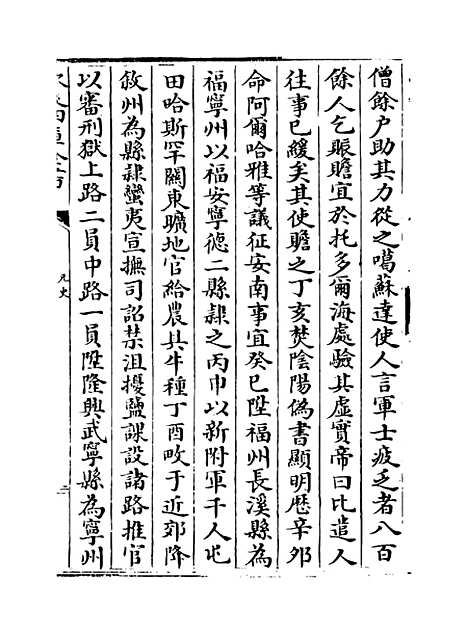 僧餘户助其力從之噶蘇達使人言軍士疲乏者八百
餘人乞賑贍宜於托多爾海處驗其虛實帝曰比遣人
往事已緩矣其使贍之丁亥焚陰陽偽書顯明歴辛夘
命阿爾哈雅等議征安南事宜癸已陞福州長溪縣為
福寧州以福安寧德二縣隸之丙申以新附軍千人屯
田哈斯罕關東曠地官給農具牛種丁酉畋于近郊降
敘州為縣隸蠻夷宣撫司詔禁沮擾鹽課設諸路推官
以審刑獄上路二員中路一員陞隆興武寧縣為寧州
元史